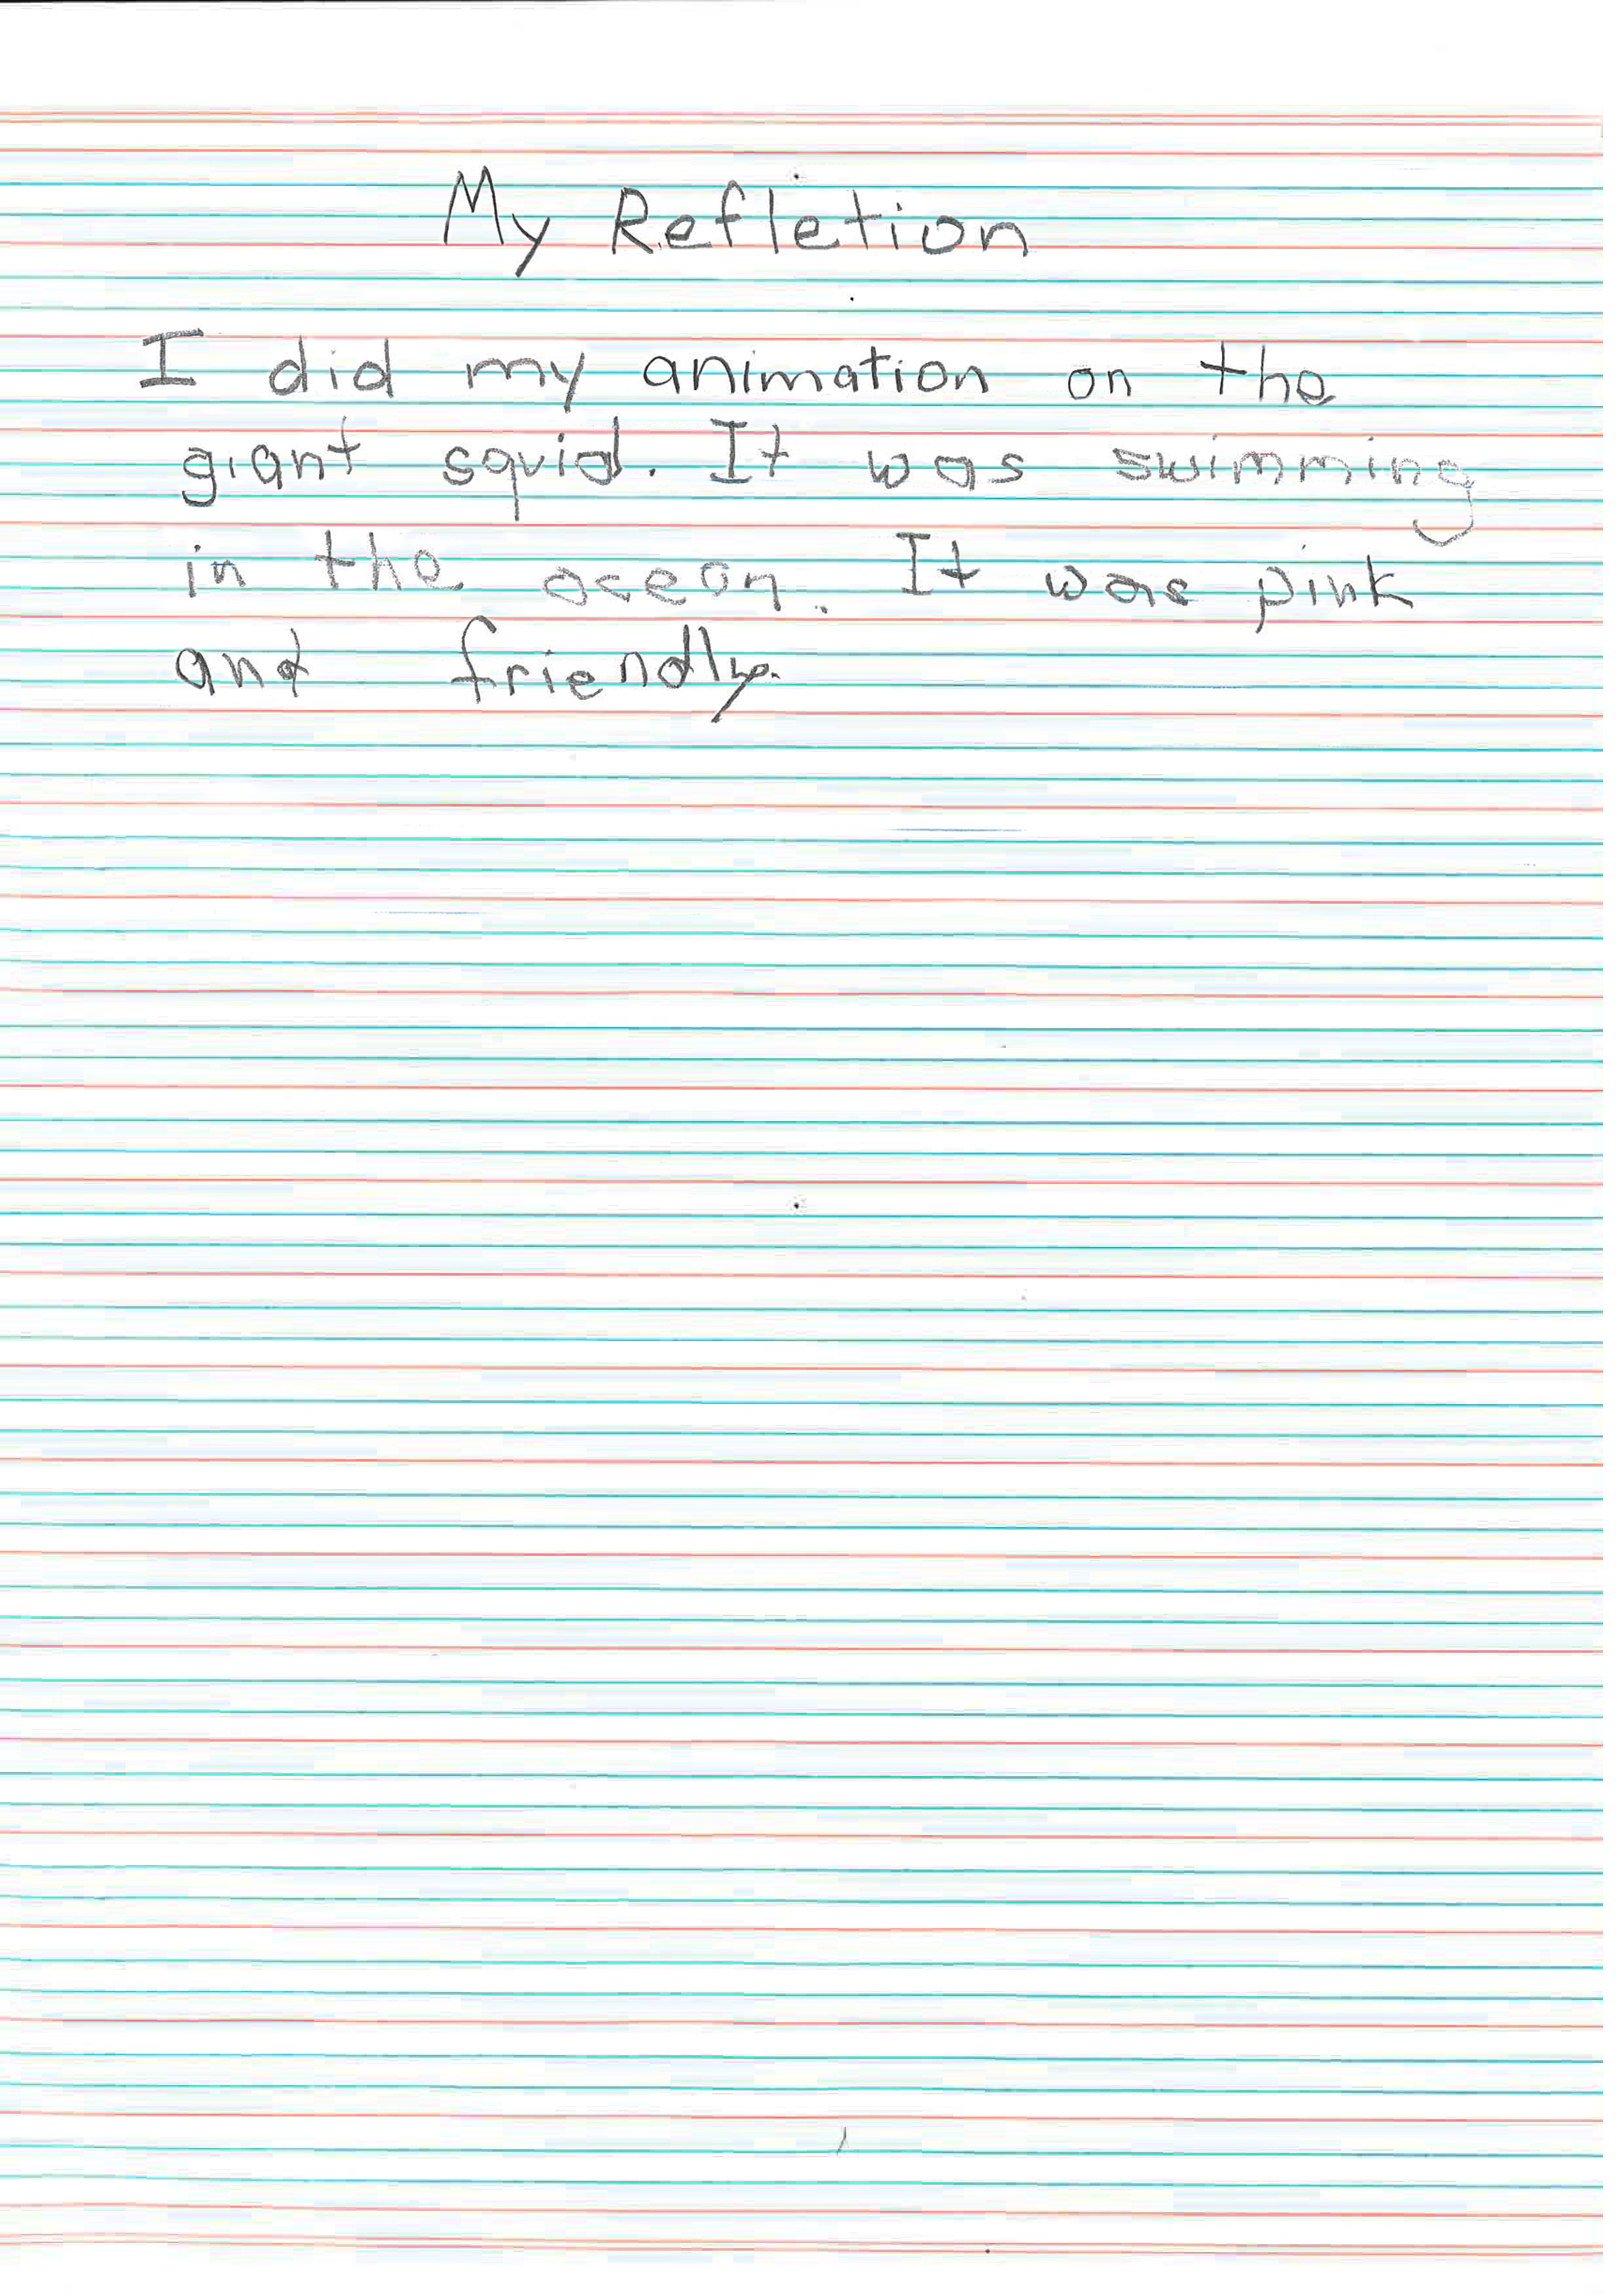 My Refletion
I did my animation on the
giant squid. It was swimming
in the ocean. It was pink
and friendly.